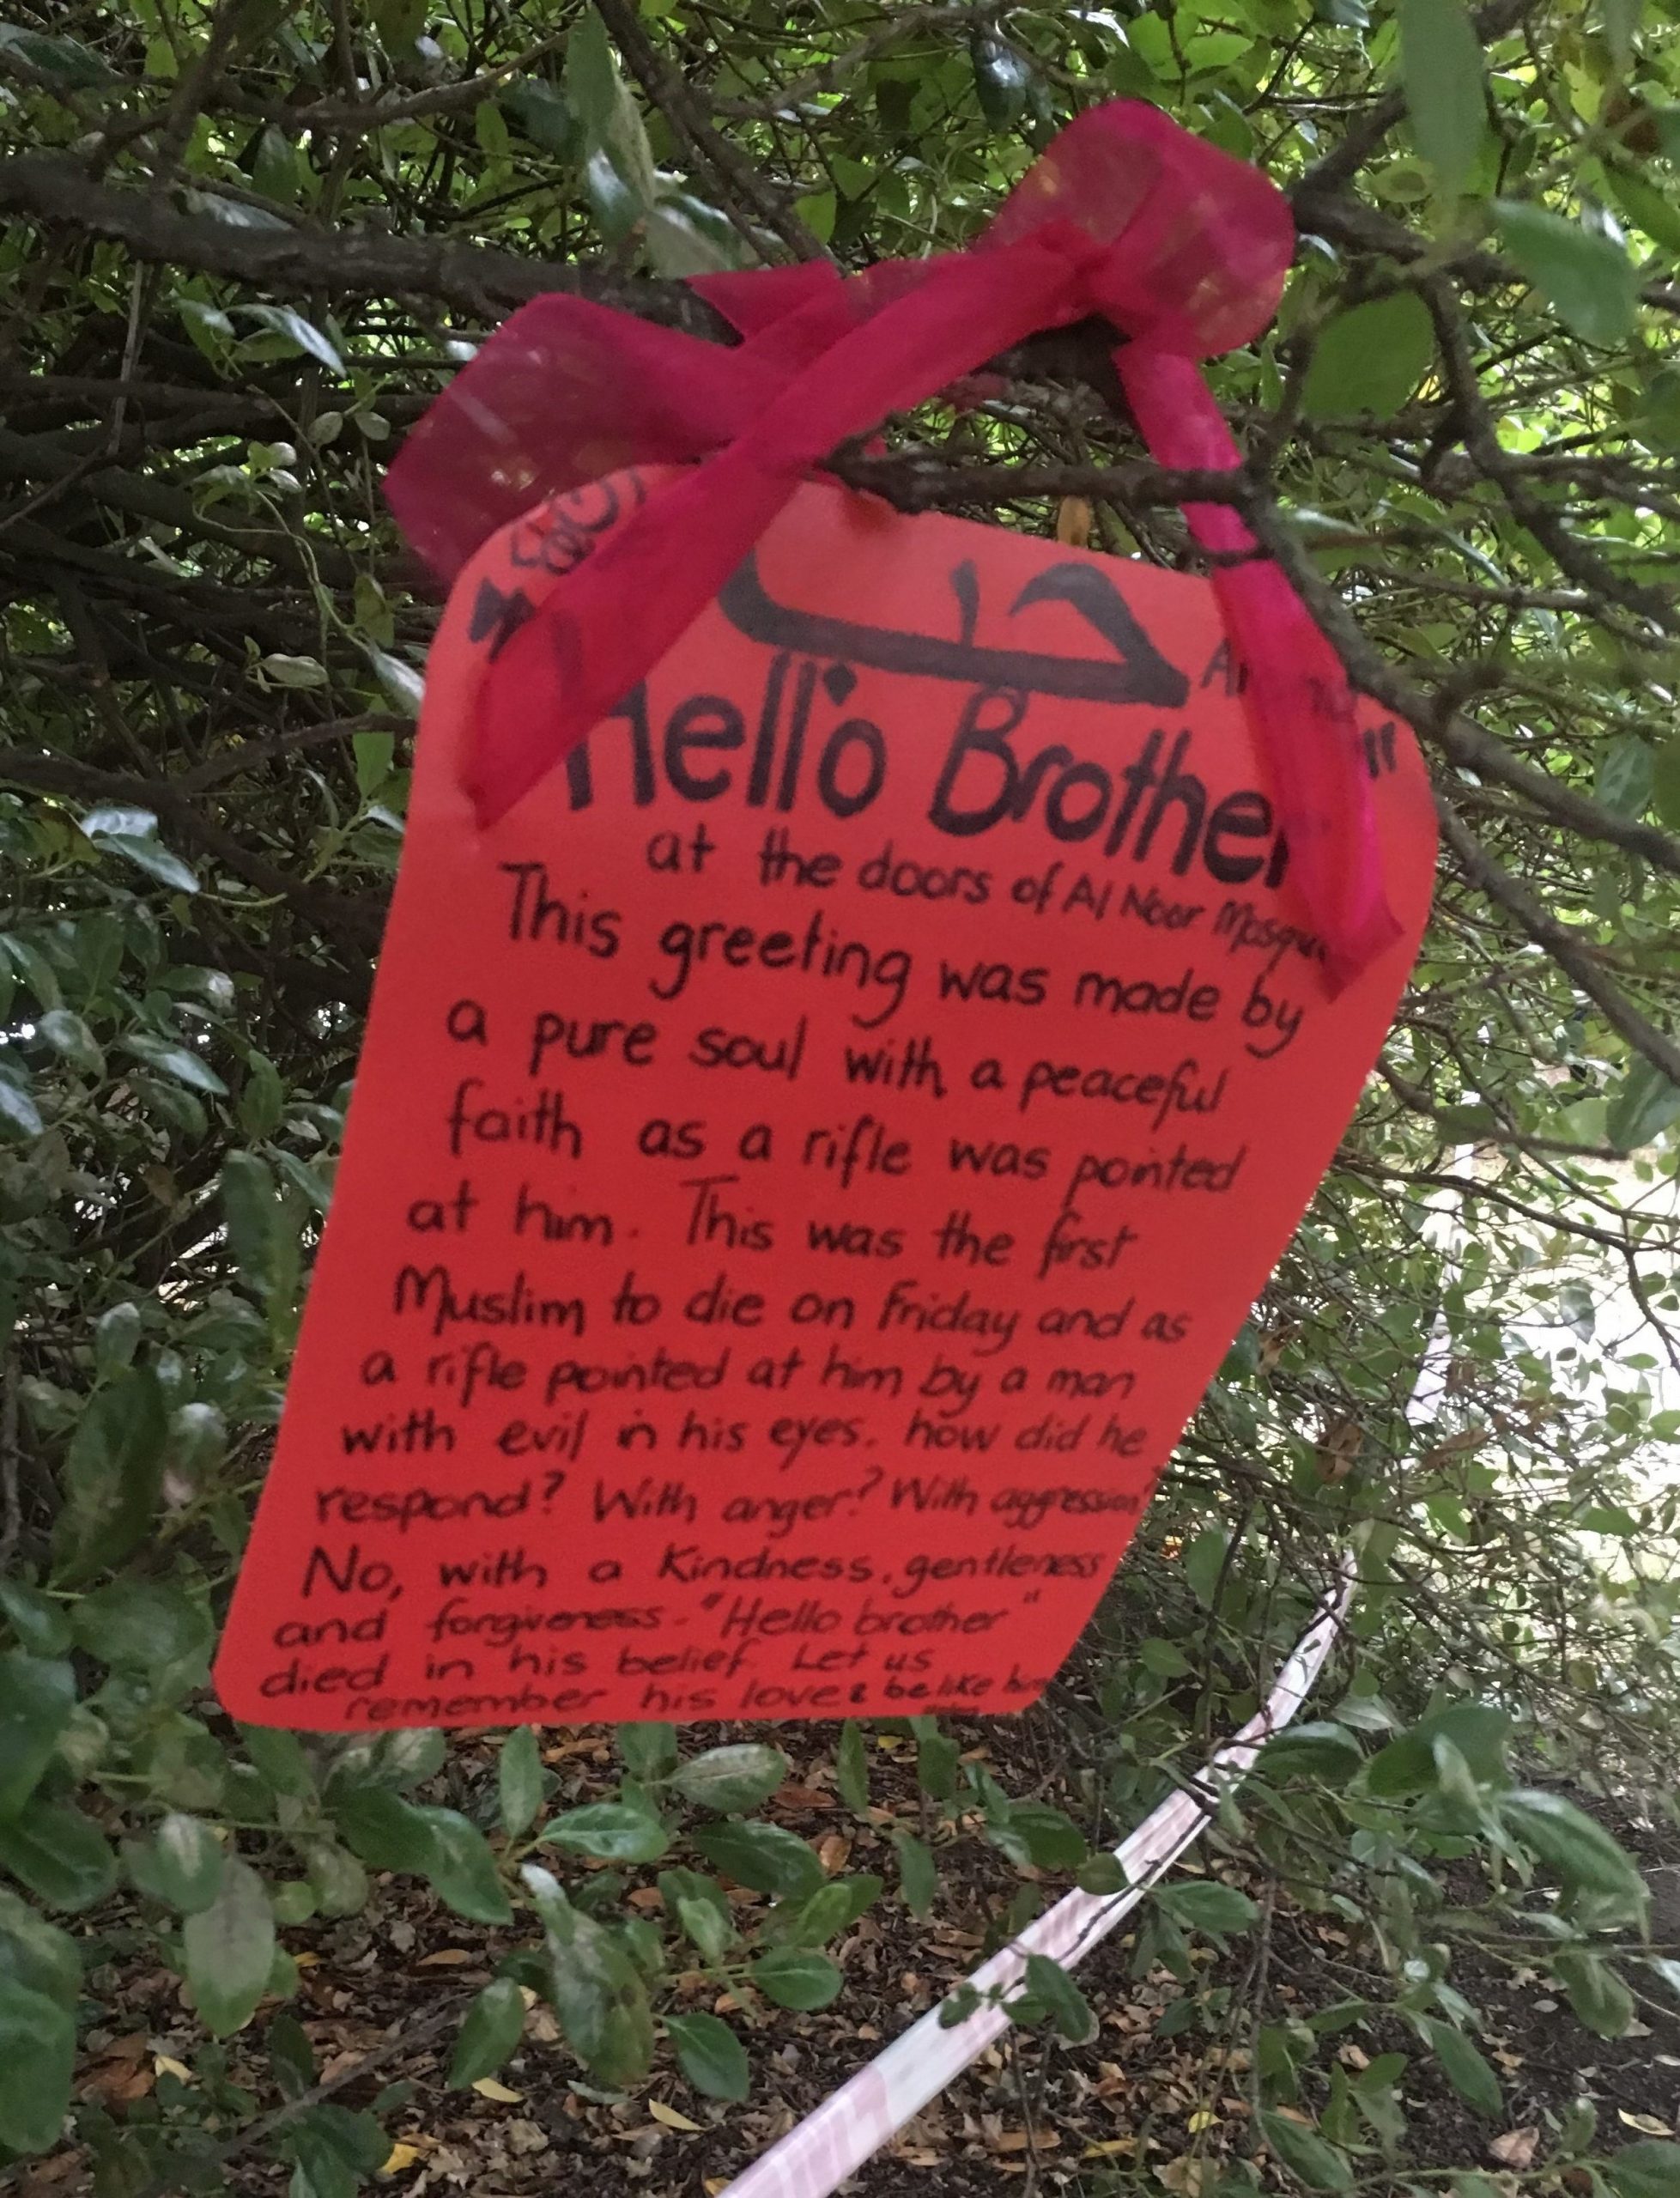 حب
"Hello Brother"
at the doors of Al Noor Mosque
This greeting was made by
a pure soul with a peaceful
faith as a rifle was pointed
at him. This was the first
Muslim to die on Friday and as
a rifle pointed at him by a man
with evil in his eyes. how did he
respond? With anger? With aggression?
No, with a kindness, gentleness
and forgiveness - "Hello brother"
died in his belief. Let us
remember his love & be like